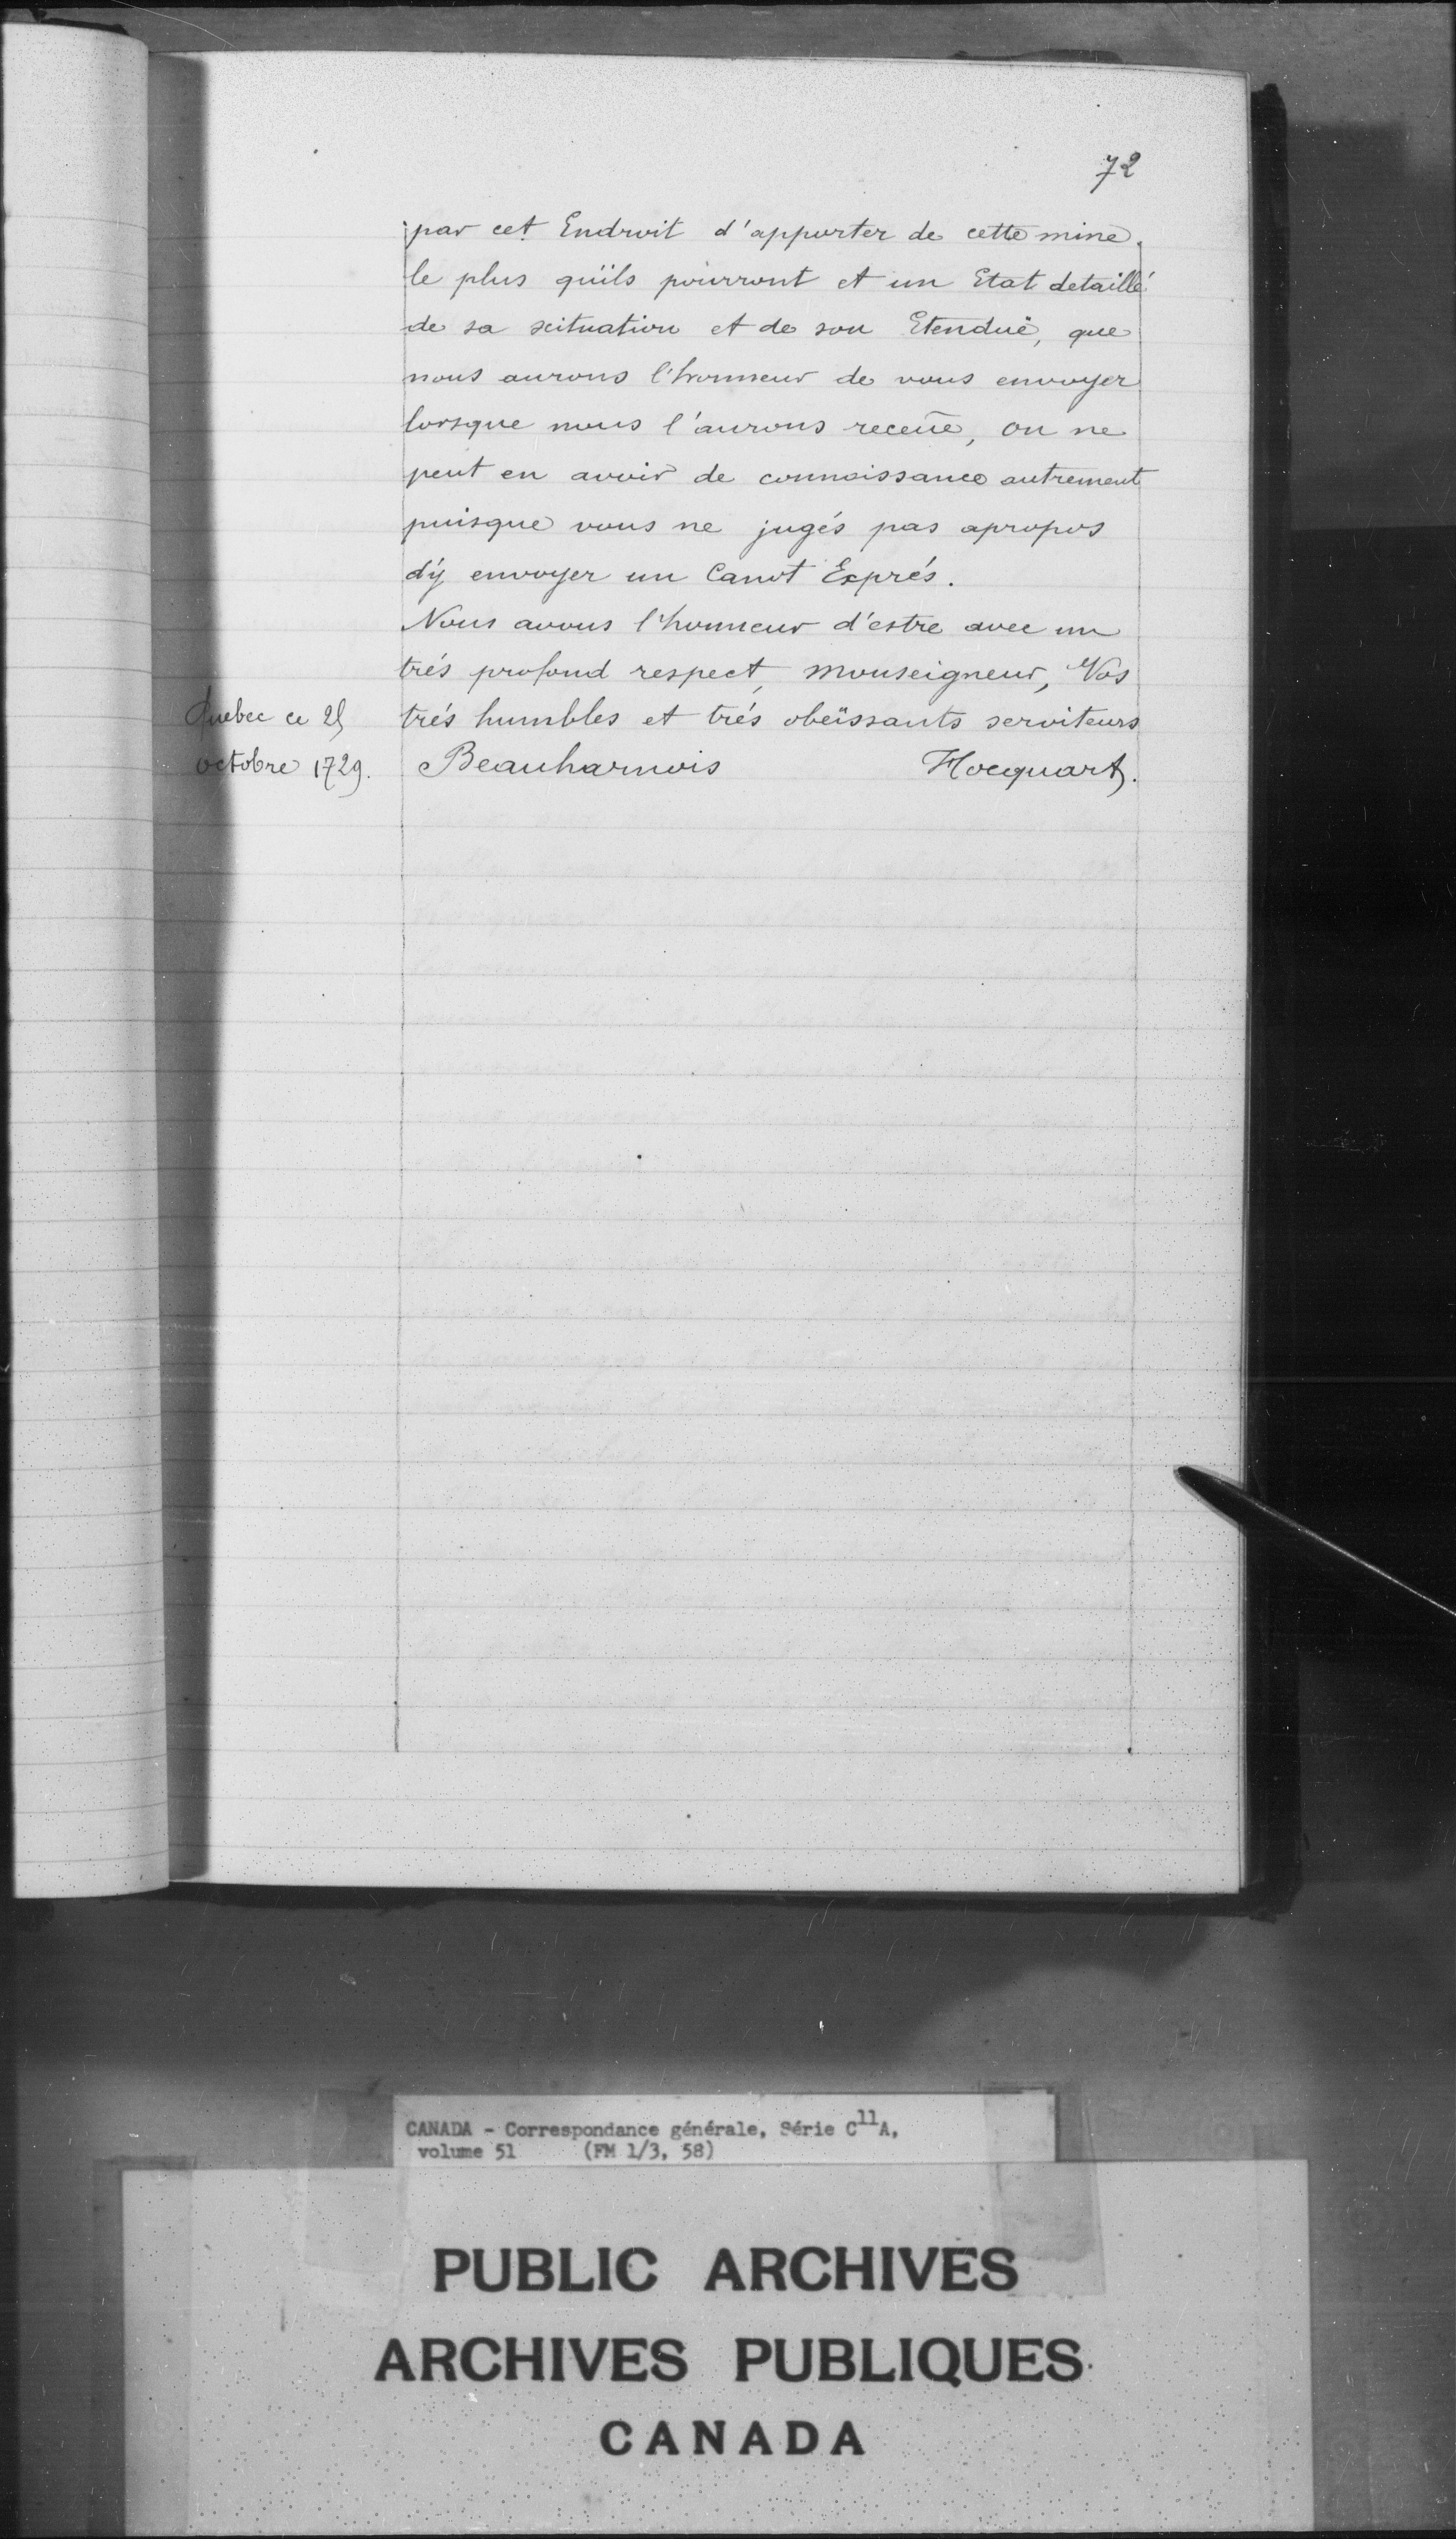 72
par cet Endroit d'apporter de cette mine.
le plus qu'ils pourront et un Etat detaillé
de sa scituation et de son Etenduë, que
nous aurons l'honneur de vous envoyer
lorsque nous l'aurons receüe, on ne
peut en avoir de connoissance autrement
puisque vous ne jugés pas apropos
d'ÿ envoyer un Canot Exprés.
Nous avons l'honneur d'estre avec un
trés profond respect, Monseigneur, Vos
trés humbles et trés obeïssants serviteurs
Quebec ce 25
octobre 1729.
Beauharnois Hocquart.
CANADA - Correspondance générale, Série C11A,
volume 51 (FM 1/3, 58)
PUBLIC ARCHIVES
ARCHIVES PUBLIQUES
CANADA